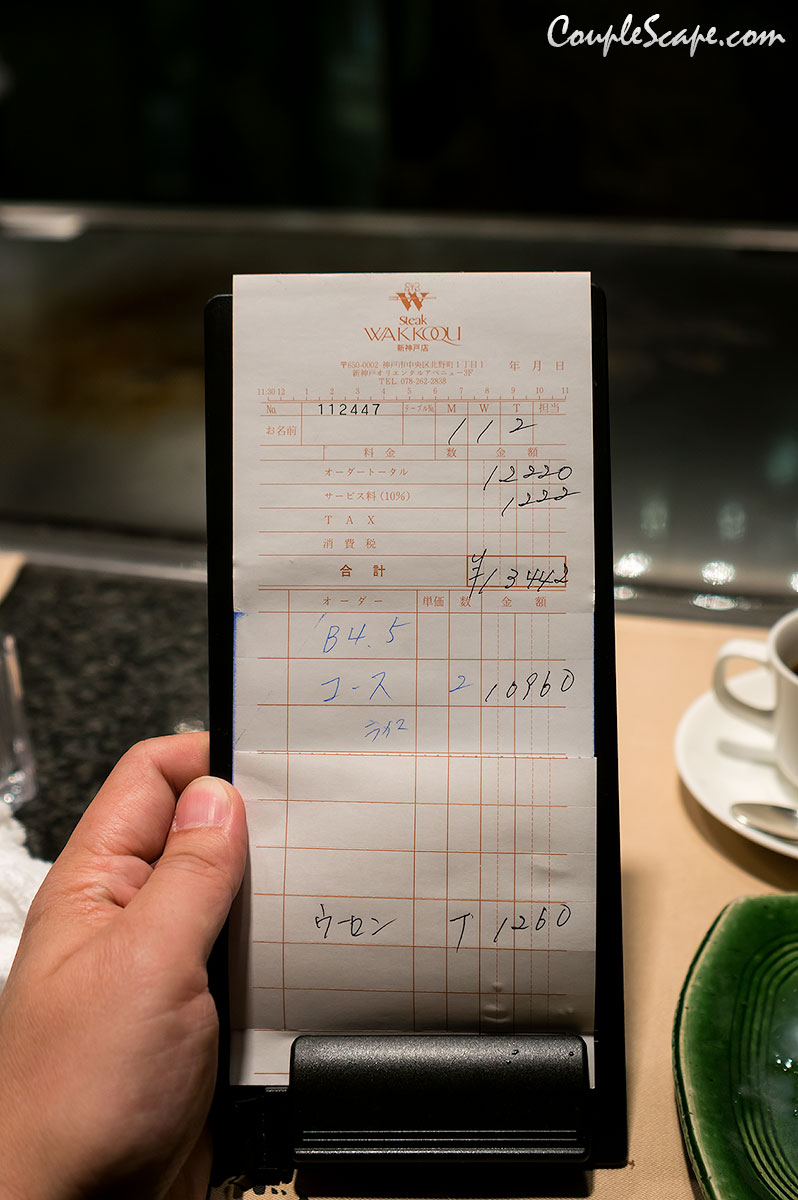 CoupleScape.com
W
Steak
WAKKOQU
新神戸店
〒650-0002 神戸市中央区北野町1丁目1 年 月 日
新神戸オリエンタルアベニュー3F
TEL 078-262-2838
11:30 12 1 2 3 4 5 6 7 8 9 10 11
No. 112447 テーブルNo. M W T 担当
お名前 1 1 2
料 金 数 金 額
オーダートータル 12220
サービス料(10%) 1222
T A X
消 費 税
合 計 ¥13442
オーダー 単価 数 金 額
B4.5
コース 2 10960
ウーロン 1 1260